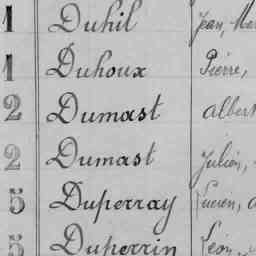 1 Duhil Jean, Mar
1 Duhoux Pierre,
2 Dumast Albert
2 Dumast Julien,
5 Duperray Lucien, A
5 Duperrin Léon,